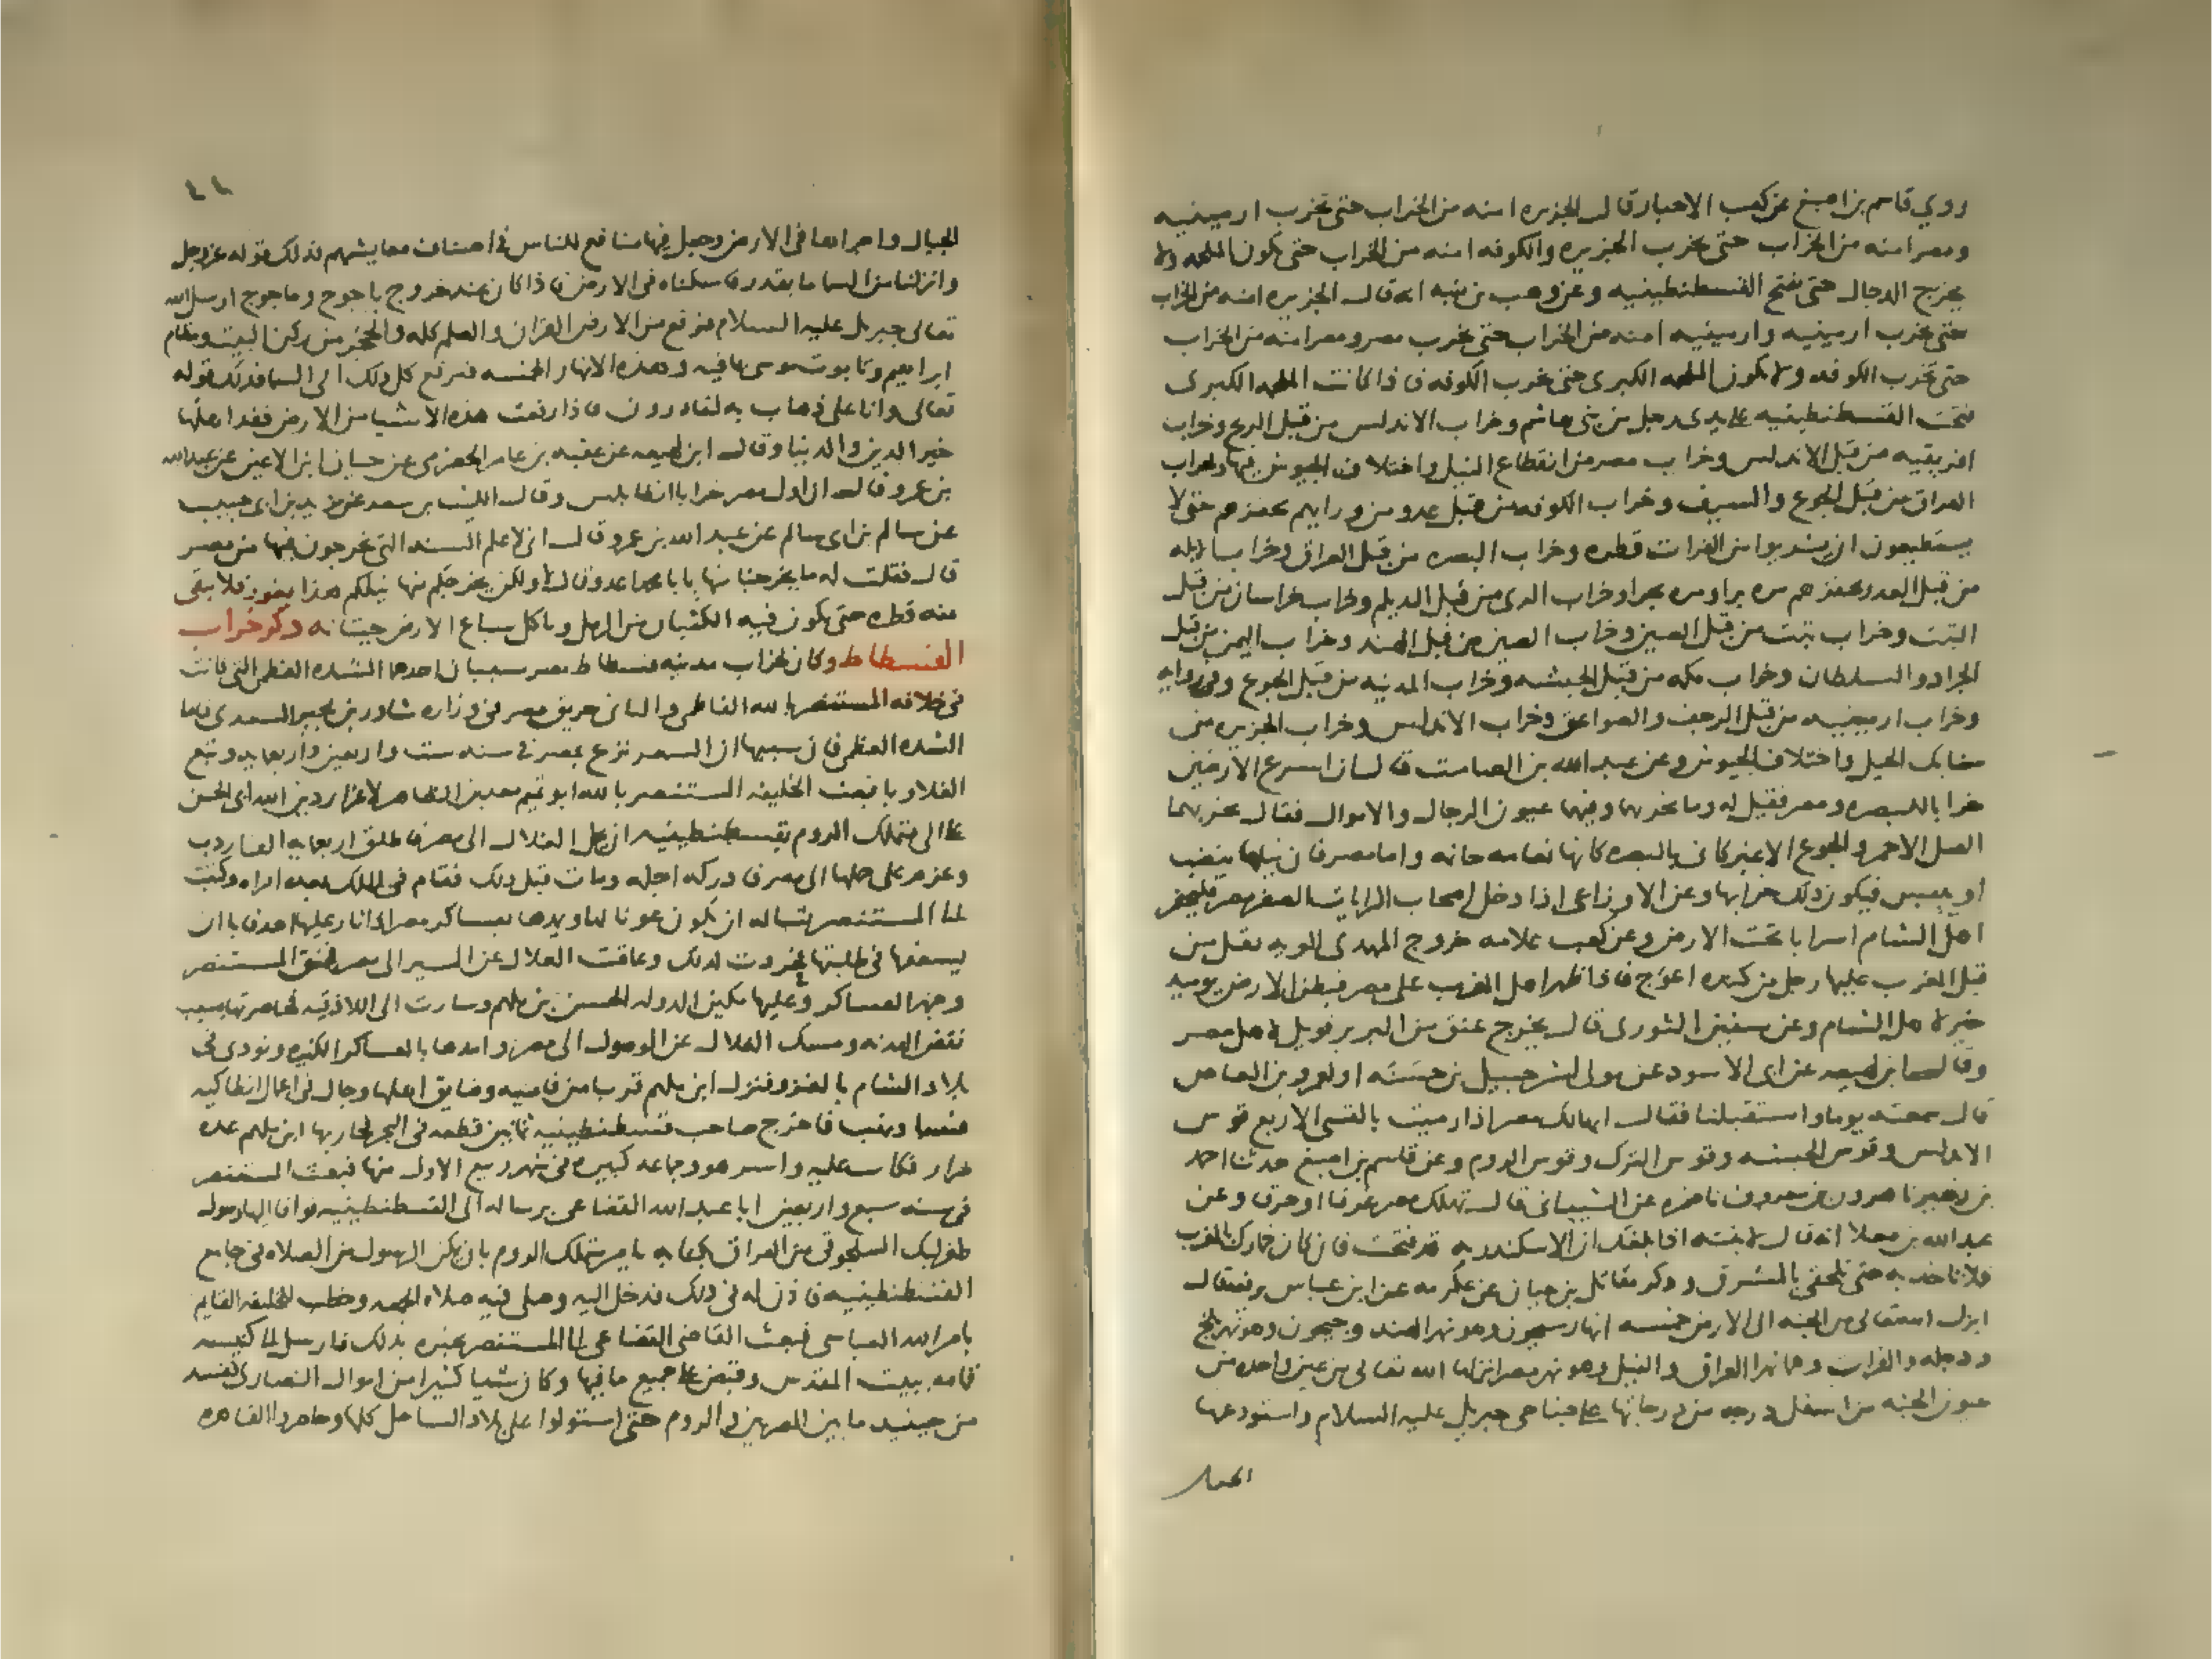 روي قاسم بن اصبغ عن كعب الاحبار قال الجزيره امنه من الخراب حتى تخرب ارمينيه
ومصر امنه من الخراب حتى تخرب الجزيره والكوفه امنه من الخراب حتى تكون الملحمه ولا
يخرج الدجال حتى تفتح القسطنطينيه وعن وهب بن منبه انه قال الجزيره امنه من الخراب
حتى تخرب ارمينيه وارمينيه امنه من الخراب حتى تخرب مصر ومصر امنه من الخراب
حتى تخرب الكوفه ولا تكون الملحمه الكبرى حتى تخرب الكوفه فاذا كانت الملحمه الكبرى
فتحت القسطنطينيه على يدى رجل من بنى هاشم وخراب الاندلس من قبل الريح وخراب
افريقيه من قبل الاندلس وخراب مصر من انقطاع النيل واختلاف الجيوش فيها وخراب
العراق من قبل الجوع والسيف وخراب الكوفه من قبل عدو من ورايهم يحفزهم حتى لا
يستطيعون ان يشربوا من الفرات قطره وخراب البصره من قبل العراق وخراب الابله
من قبل العدو يحفزهم مره برا ومره بحرا وخراب الرى من قبل الديلم وخراب خراسان من قبل
التبت وخراب تبت من قبل الصين وخراب الصين من قبل الهند وخراب اليمن من قبل
الجراد والسلطان وخراب مكه من قبل الحبشه وخراب المدينه من قبل الجوع وفى روايه
وخراب ارمينيه من قبل الرجف والصواعق وخراب الاندلس وخراب الجزيره من
سنابك الخيل واختلاف الجيوش وعن عبد الله بن الصامت قال ان اسرع الارضين
خرابا البصره ومصر فقيل له وما يخربهما وفيهما عيون الرجال والاموال فقال يخربهما
القتل الاحمر والجوع الاغبر كانى بالبصره كانها نعامه جاثمه واما مصر فان نيلها ينضب
او ييبس فيكون ذلك خرابها وعن الاوزاعى اذا دخل اصحاب الرايات الصفر مصر فليحفر
اهل الشام اسرابا تحت الارض وعن كعب علامه خروج المهدى الويه تقبل من
قبل الغرب عليها رجل من كنده اعرج فاذا ظهر اهل الغرب على مصر فبطن الارض يوميذ
خير لاهل الشام وعن سفين الثورى قال يخرج عنق من البربر فويل لاهل مصر
وقال ابن لهيعه عن ابى الاسود عن مولى لشرحبيل بن حسنه او لعمرو بن العاص
قال سمعته يوما واستقبلنا فقال ايها لك مصر اذا رميت بالقسى الاربع قوس
الاندلس وقوس الحبشه وقوس الترك وقوس الروم وعن قاسم بن اصبغ حدثنا احمد
بن زهير نا هرون بن معروف نا ضمره عن الشيبانى قال تهلك مصر غرقا او حرقا وعن
عبد الله بن معلا انه قال لابنته اذا بلغك ان الاسكندريه قد فتحت فان كان خمارك بالغرب
فلا تاخذيه حتى تلحقى بالمشرق وذكر مقاتل بن حيان عن عكرمه عن ابن عباس يرفعه قال
انزل الله تعالى من الجنه الى الارض خمسه انهار سيحون وهو نهر الهند وجيحون وهو نهر بلخ
ودجله والفرات وهما نهرا العراق والنيل وهو نهر مصر انزلها الله تعالى من عين واحده من
عيون الجنه من اسفل درجه من درجاتها على جناحى جبريل عليه السلام واستودعها
الجبال
٤١
الجبال واجراها فى الارض وجعل فيها منافع للناس فى اصناف معايشهم فذلك قوله عز وجل
وانزلنا من السما ما بقدر فاسكناه فى الارض فاذا كان عند خروج ياجوج وماجوج ارسل الله
تعالى جبريل عليه السلام فرفع من الارض القران والعلم كله والحجر من ركن البيت ومقام
ابراهيم وتابوت موسى بما فيه وهذه الانهار الخمسه فيرفع كل ذلك الى السما فذلك قوله
تعالى وانا على ذهاب به لقادرون فاذا رفعت هذه الاشيا من الارض فقد اهلها
خير الدين والدنيا وقال ابن لهيعه عن عقبه بن عامر الحضرمى عن حيان ابن الاعين عن عبد الله
بن عمرو قال ان اول مصر خرابا انطابلس وقال الليث بن سعد عن يزيد بن ابى حبيب
عن سالم بن ابى سالم عن عبد الله بن عمرو قال انى لاعلم السنه التى تخرجون فيها من مصر
قال فقلت له ما يخرجنا منها يا با محمد اعدو قال لا ولكن يخرجكم منها نيلكم هذا يغور فلا يبقى
منه قطره حتى تكون فيه الكثبان من الرمل وياكل سباع الارض حيتانه ذكر خراب
الفسطاط وكان لخراب مدينه فسطاط مصر سببان احدهما الشده العظمى التى كانت
فى خلافه المستنصر بالله الفاطمى والثانى حريق مصر فى وزاره شاور بن مجير السعدى فاما
الشده العظمى فان سببها ان السعر نزع بمصر فى سنه ست واربعين واربعمايه وتبع
الغلا وبا فبعث الخليفه المستنصر بالله ابو تميم معد بن الظاهر لاعزاز دين الله ابى الحسن
على الى متملك الروم بقسطنطينيه ان يحمل الغلال الى مصر فاطلق اربعمايه الف اردب
وعزم على حملها الى مصر فادركه اجله ومات قبل ذلك فقام فى الملك بعده امراه وكتبت
الى المستنصر تساله ان يكون عونا لها ويمدها بعساكر مصر اذا ثار عليها احد فابا ان
يسعفها فى طلبتها فجردت لذلك وعاقت الغلال عن المسير الى مصر فحنق المستنصر
وجهز العساكر وعليها مكين الدوله الحسن بن ملهم وسارت الى اللاذقيه فحاصرتها بسبب
نقض الهدنه ومسك الغلال عن الوصول الى مصر وامدها بالعساكر الكثيره ونودى فى
بلاد الشام بالغزو فنزل ابن ملهم قريبا من فاميه وضايق اهلها وجال فى اعمال انطاكيه
فسبا ونهب فاخرج صاحب قسطنطينيه ثمانين قطعه فى البحر فحاربها ابن ملهم عده
مرار فكانت عليه واسر هو وجماعه كثيره فى شهر ربيع الاول منها فبعث المستنصر
فى سنه سبع واربعين ابا عبد الله القضاعى برساله الى القسطنطينيه فوافا اليها رسول
طغرلبك السلجوقى من العراق بكتابه يامر متملك الروم بان يمكن الرسول من الصلاه فى جامع
القسطنطينيه فاذن له فى ذلك فدخل اليه وصلى فيه صلاه الجمعه وخطب للخليفه القايم
بامر الله العباسى فبعث القاضى القضاعى الى المستنصر يخبره بذلك فارسل الى كنيسه
قمامه ببيت المقدس وقبض على جميع ما فيها وكان شيا كثيرا من اموال النصارى ففسد
من حينيذ ما بين المصريين والروم حتى استولوا على بلاد الساحل كلها وحاصروا القاهره